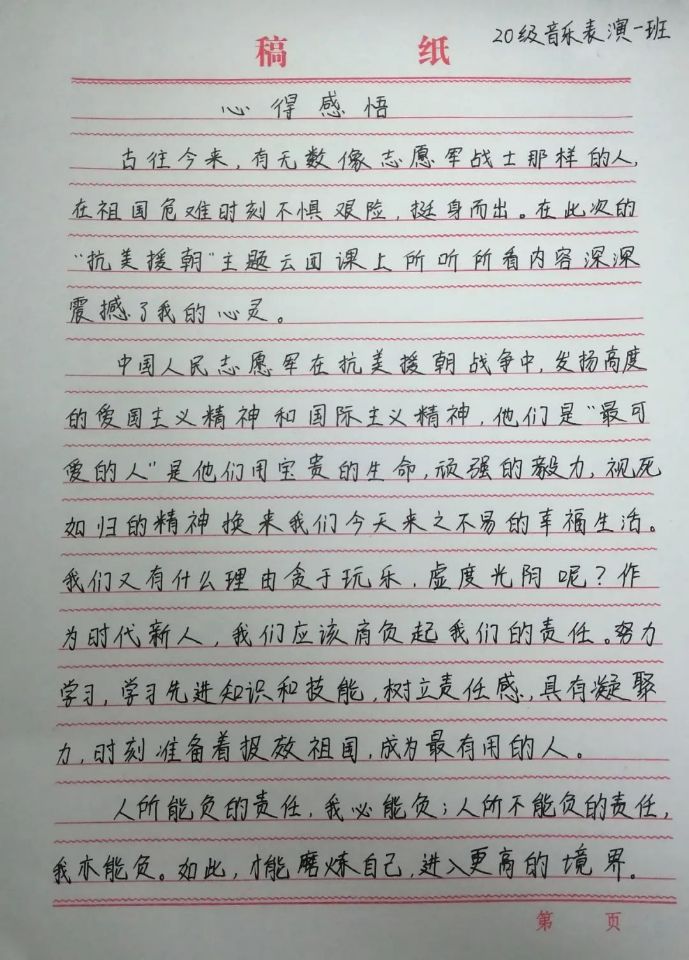 20级音乐表演一班
稿 纸
心得感悟
古往今来,有无数像志愿军战士那样的人,
在祖国危难时刻不惧艰险,挺身而出。在此次的
“抗美援朝”主题云团课上所听所看内容深深
震撼了我的心灵。
中国人民志愿军在抗美援朝战争中,发扬高度
的爱国主义精神和国际主义精神,他们是“最可
爱的人”是他们用宝贵的生命,顽强的毅力,视死
如归的精神换来我们今天来之不易的幸福生活。
我们又有什么理由贪于玩乐,虚度光阴呢?作
为时代新人,我们应该肩负起我们的责任。努力
学习,学习先进知识和技能,树立责任感,具有凝聚
力,时刻准备着报效祖国,成为最有用的人。
人所能负的责任,我必能负;人所不能负的责任,
我亦能负。如此,才能磨炼自己,进入更高的境界。
第 页